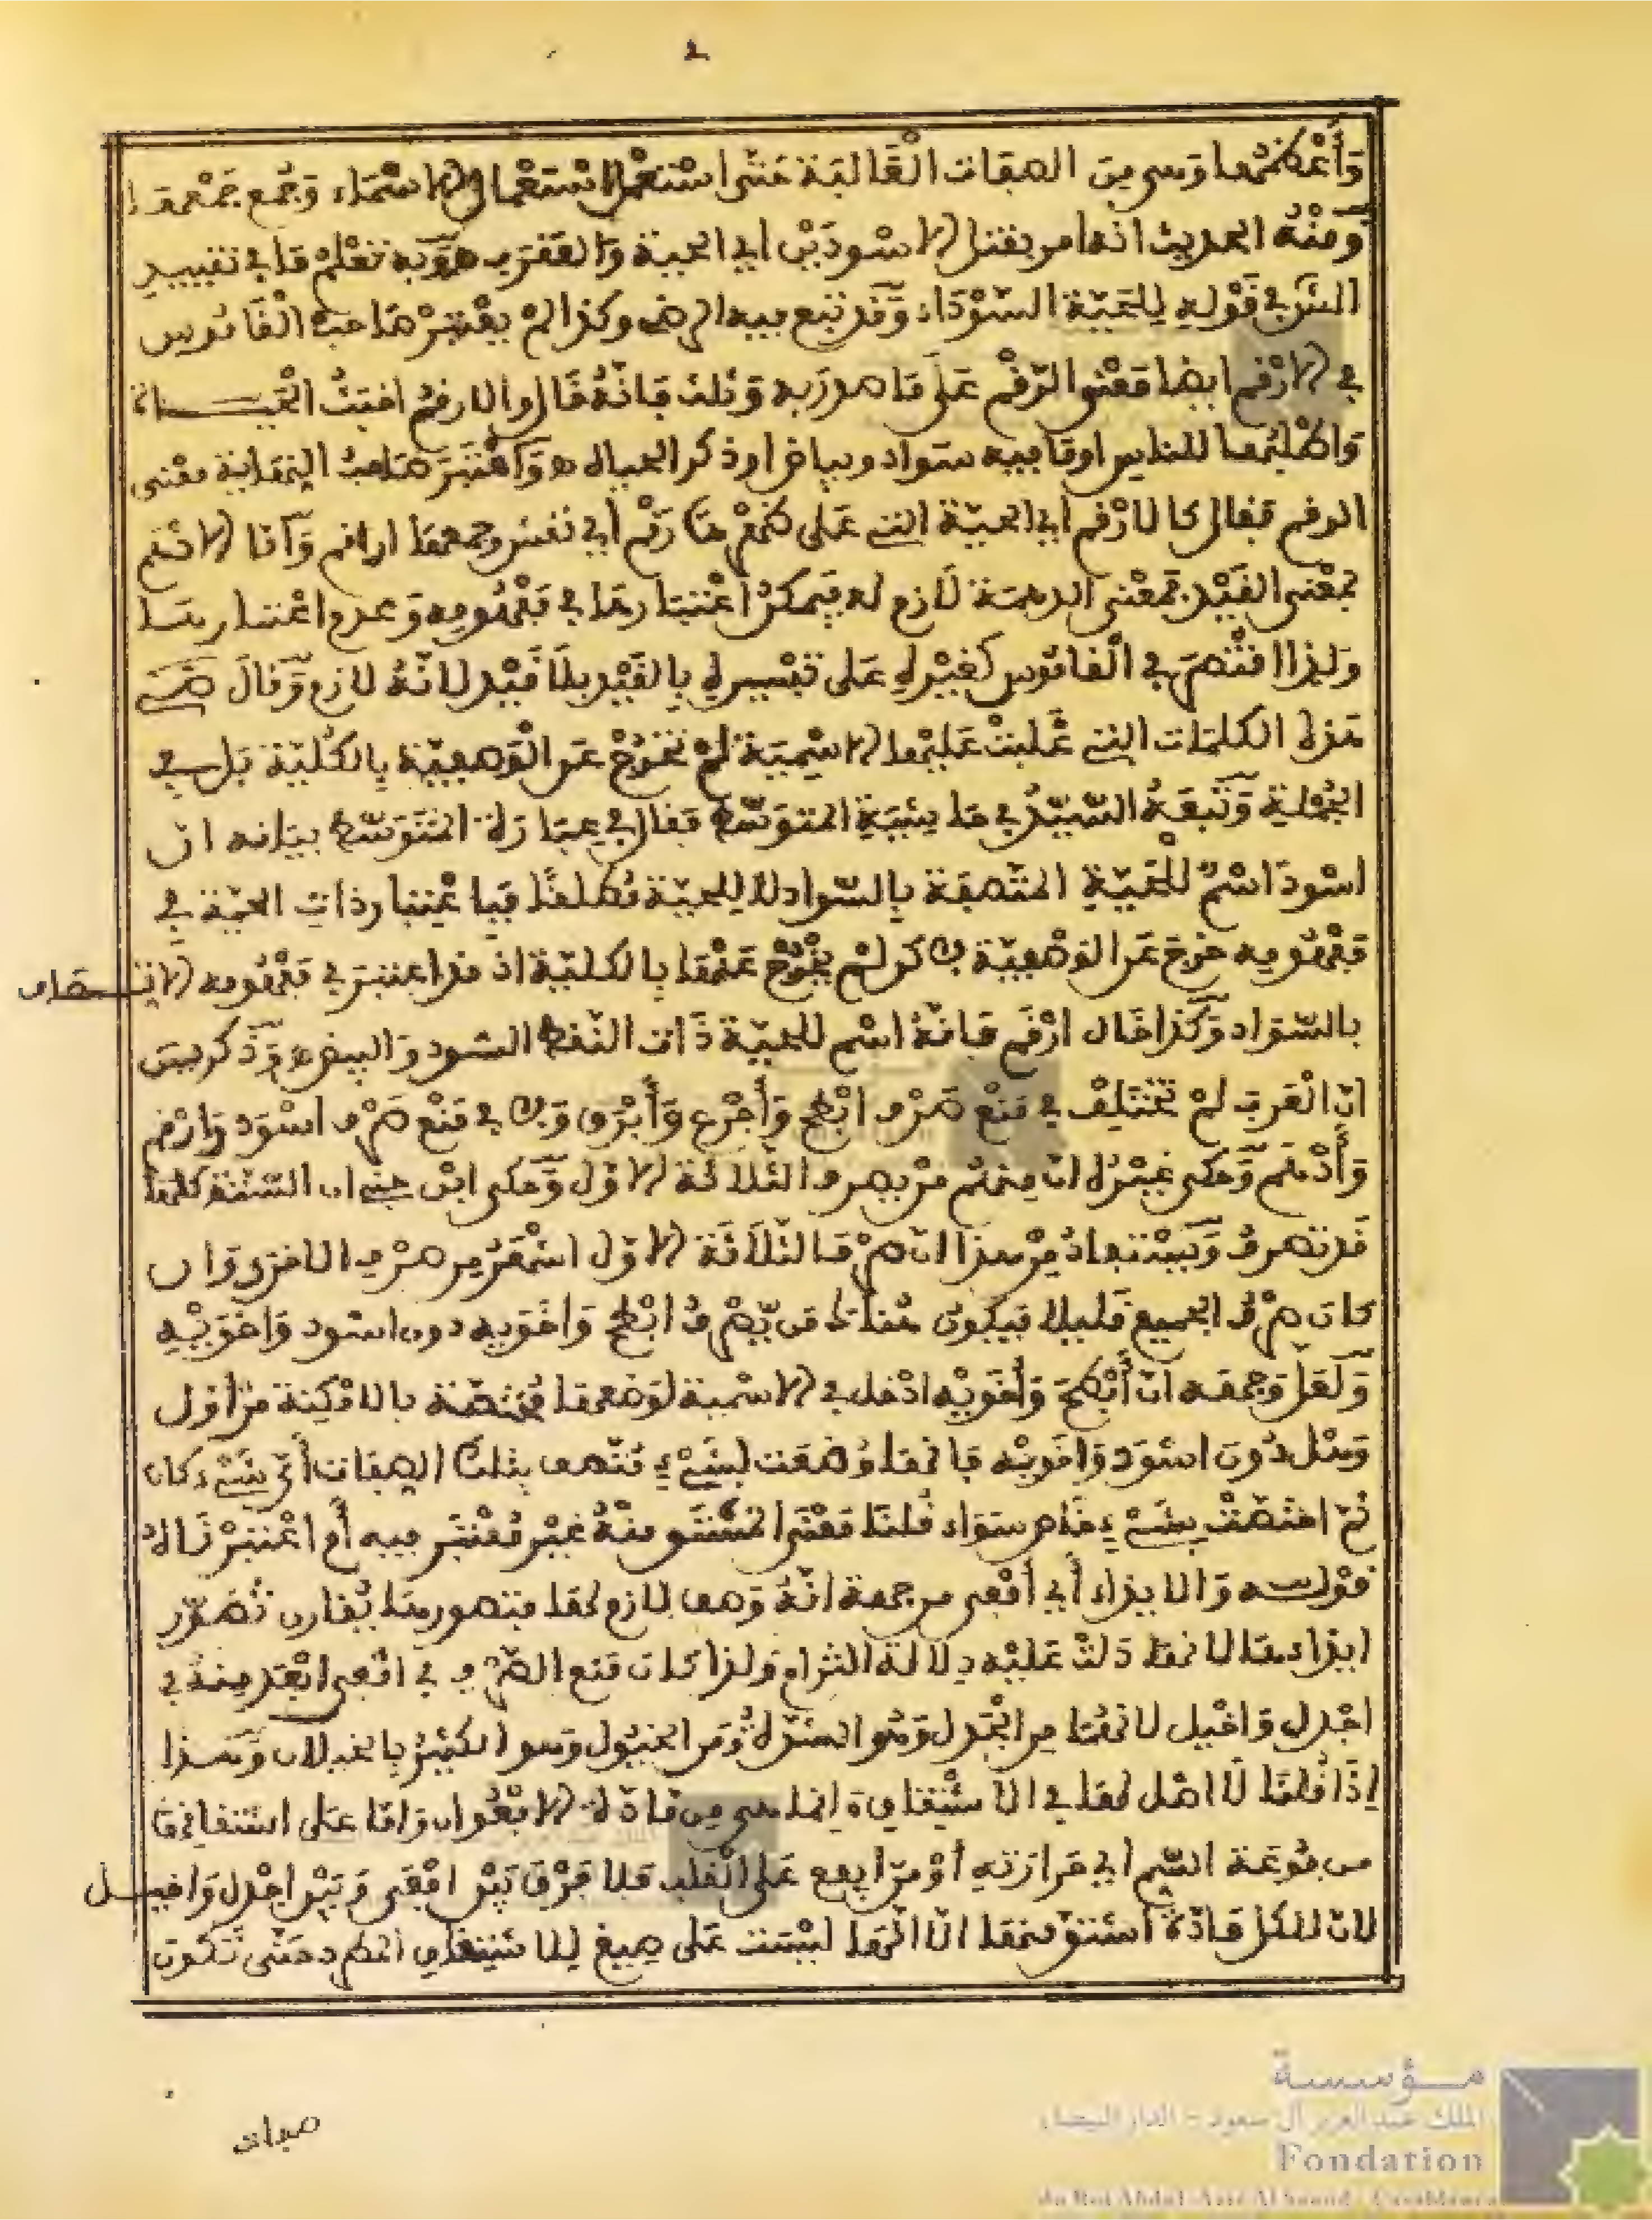 2
وَأَعْظَمُها وَهي مِنَ الصفات الْغَالبَة حَتى اسْتعْمل اسْتعْمال الاسْمَاء وَجُمع جَمْعها
وَمنْهُ الحديث انه امر بقتل الاسْودَيْن اي الحية وَالعَقرب وَبه تعْلم مَا في تقييد
الش في قَوْله لِلحَيَّة السَّوْدَاء وَقَد تبع فيه الرضى وكذا لمْ يعْتبرْ صَاحبُ الْقَامُوس
في الارْقم ايضا مَعْنى الرّقْم عَلى مَا صدّر به وَنْلت فَانّهُ قَال والارقمُ اخبَثُ الحَيات
وَاطْلبُها للناس اوْ مَا فيه سَواد وبياض او ذكر الحيات وَاعْتَبَرَ صَاحبُ النهَاية مَعْنى
الرقم فقال كالارْقم أي الحيّة التي عَلى ظهْرها رَقْم أي نقش وجمعها اراقم وَأمّا الادْهم
بمَعْنى القَيْد فمَعْنى الدهمَة لَازم له فيمكنُ اعْتبارها في مَفْهُومه وَعدم اعْتبارها
وَلذا اقْتصَرَ في القامُوس كغيْره عَلى تفْسيره بالقَيْد بلا قَيْد لانّهُ لازم وَقالَ
هَذه الكلمَات التي غَلبتْ عَليْها الاسْميّة لمْ تخْرُجْ عَن الْوَصفيّة بِالكُليّة بَل في
الجُمْلة وَتَبعَهُ السَّيّدُ في حَاشيَة المتوَسّط فقال في عبَارة المُتَوَسّط بيَانه ان
اسْودَ اسْمٌ للْحَيّة المتّصفَة بِالسَّواد لا للحيّة مُطلقًا فباعْتبار ذات الحيّة في
مَفْهُومه خرجَ عَن الوَصْفيّة ولكن لمْ يخْرُجْ عَنْها بالكليّة اذ قد اعتبر في مَفْهُومه الاتصاف
بالسّوَاد وَكَذا حَال ارْقم فانّهُ اسْم للحيّة ذَات النّقط السّود وَالبيض وَذَكر س
انّ الْعَربَ لمْ تخْتَلفْ في مَنْع صَرْف ابْطح وَأَجْرَع وَأَبْرَق وَلا في مَنْع صَرْف اسْوَد وَارْقم
وَأَدْهَم وَحَكى غَيْرُهُ انّ منهُم مَن يصْرف الثّلاثة الاوّل وَحَكى ابْن جني ان السّتّة كلها
قَد تصْرفُ وَيسْتفادُ منْ هذا انّ صَرْف الثّلاثة الاوّل اشْهَرُ من صَرْف الاخْرى وَان
كان صَرْفُ الجميع قليلا فيكون هُناك مَن يَصْرفُ ابْطح وَاخَوَيه دون اسْود وَاخَوَيْه
وَلَعَلّ وَجْهه انّ أَبْطحَ وَأَخَوَيْه ادْخل في الاسْمية لوَضْعها مُخْتصّة بالامْكِنة منْ أوّل
وَهْلة دُونَ اسْوَد وَاخَويْه فانها وُضعَت لشَيْء مُتّصف بتلك الصفات أَيّ شَيْء كان
ثمّ اخْتصّتْ بشَيْء خاص سَوَاء قُلنَا مَعْنى المشْتَق منْهُ غيْر مُعْتبر فيه أَم اعْتبرْناهُ
قوْله وَالايذاء أي أفْعى من جهة انّهُ وَصف لازم لها فتصورها يُقارن تصَوّر
ايذائها لانها دَلتْ عَليْه دلالة التزام وَلذا كان مَنع الصّرْف في افْعى ابْعَد منهُ في
اجْدل وَاخْيل لانهُمَا من الجَدْل وَهُو الشدّة وَمن الخيُول وَهو الكثيرُ الخيلان وَهَذا
إذَا قُلنا لَا اصْل لها في الاشْتقاق وَانما هي من مَادّة الافْعُوان وَامّا عَلى اشْتقاقها
من فُوعَة السّم أي حَرَارَته أوْ منْ ايفع عَلى القلب فلا فَرْقَ بَيْن افْعى وَبَيْن اجْدل وَاخيل
لانّ للكل مَادّةً اشتقّ منها الّا انّها ليْسَت عَلى صيغ للاشتقاق المطرد حَتّى تَكون
صفات
مـؤسسة
الملك عبد العزيز آل سعود - الدار البيضاء
Fondation
du Roi Abdul-Aziz Al Saoud - Casablanca